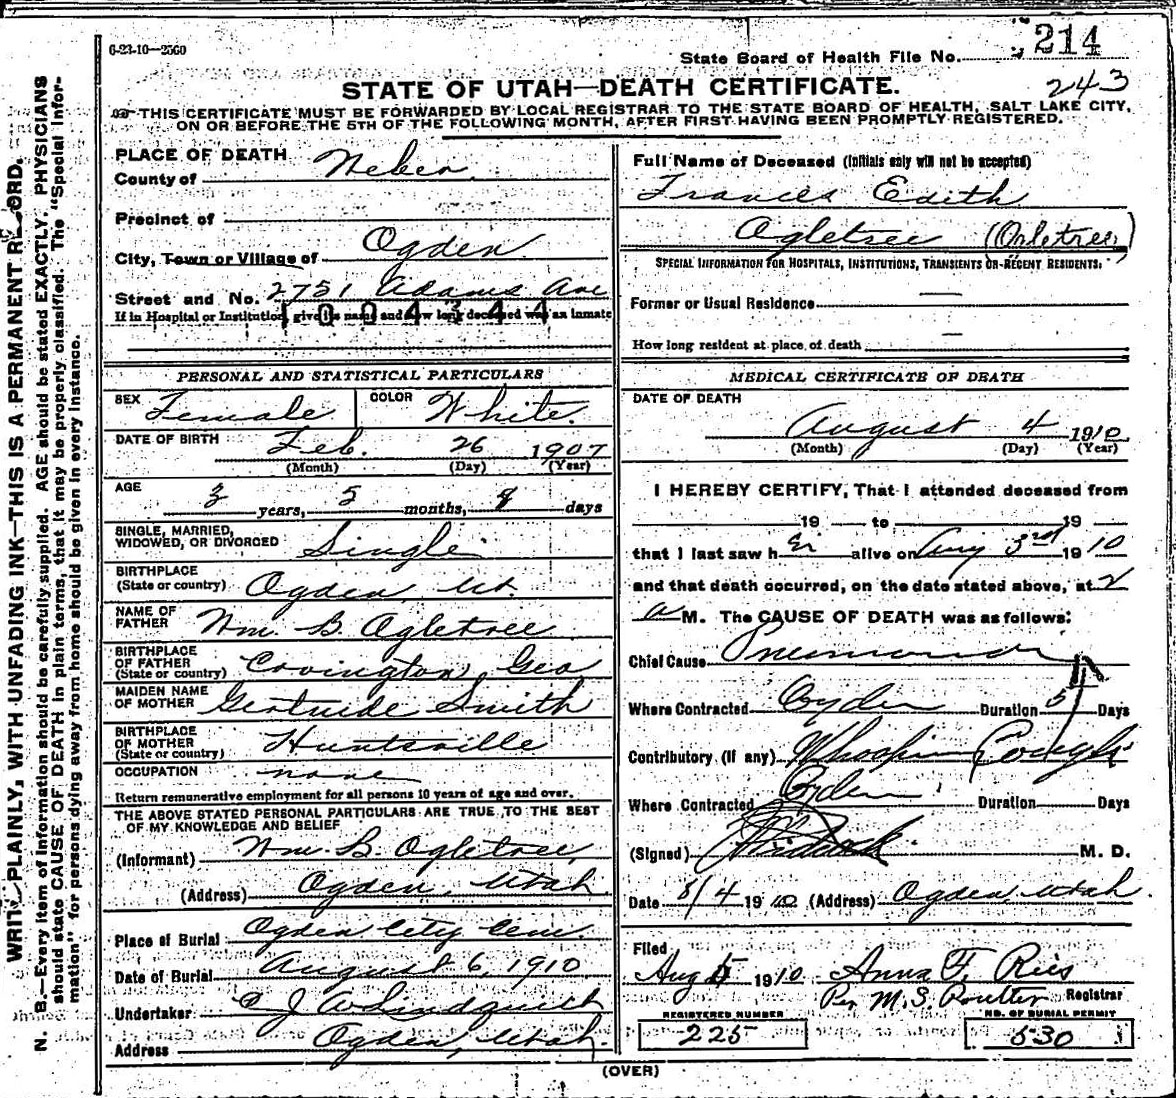 6-23-10—2560
State Board of Health File No. 214
243
STATE OF UTAH—DEATH CERTIFICATE.
THIS CERTIFICATE MUST BE FORWARDED BY LOCAL REGISTRAR TO THE STATE BOARD OF HEALTH, SALT LAKE CITY,
ON OR BEFORE THE 5TH OF THE FOLLOWING MONTH, AFTER FIRST HAVING BEEN PROMPTLY REGISTERED.
WRITE PLAINLY, WITH UNFADING INK—THIS IS A PERMANENT RECORD.
N. B.—Every item of information should be carefully supplied. AGE should be stated EXACTLY. PHYSICIANS
should state CAUSE OF DEATH in plain terms, that it may be properly classified. The "Special Infor-
mation" for persons dying away from home should be given in every instance.
PLACE OF DEATH
County of Weber
Precinct of
City, Town or Village of Ogden
Street and No. 2751 Adams Ave
If in Hospital or Institution, give its name and how long deceased was an inmate
1004344
PERSONAL AND STATISTICAL PARTICULARS
SEX Female COLOR White.
DATE OF BIRTH Feb. 26 1907
(Month) (Day) (Year)
AGE 3 years, 5 months, 8 days
SINGLE, MARRIED,
WIDOWED, OR DIVORCED Single
BIRTHPLACE
(State or country) Ogden, Ut.
NAME OF
FATHER Wm. B. Ogletree
BIRTHPLACE
OF FATHER
(State or country) Covington, Geo
MAIDEN NAME
OF MOTHER Gertrude Smith
BIRTHPLACE
OF MOTHER
(State or country) Huntsville
OCCUPATION none
Return remunerative employment for all persons 10 years of age and over.
THE ABOVE STATED PERSONAL PARTICULARS ARE TRUE TO THE BEST
OF MY KNOWLEDGE AND BELIEF
(Informant) Wm. B. Ogletree,
(Address) Ogden, Utah.
Place of Burial Ogden City Cem
Date of Burial August 6, 1910
Undertaker C J A Lindquist
Address Ogden, Utah.
Full Name of Deceased (Initials only will not be accepted)
Frances Edith
Ogletree (Orletree)
SPECIAL INFORMATION FOR HOSPITALS, INSTITUTIONS, TRANSIENTS OR RECENT RESIDENTS:
Former or Usual Residence —
How long resident at place of death —
MEDICAL CERTIFICATE OF DEATH
DATE OF DEATH
August 4 1910
(Month) (Day) (Year)
I HEREBY CERTIFY, That I attended deceased from
19 to 19
that I last saw her alive on Aug 3rd 1910
and that death occurred, on the date stated above, at 2
a M. The CAUSE OF DEATH was as follows:
Chief Cause Pneumonia
Where Contracted Ogden Duration 5 Days
Contributory (if any) Whooping Cough
Where Contracted Ogden Duration Days
(Signed) M. D.
Date 8/4 1910 (Address) Ogden, Utah.
Filed
Aug 5 1910 Anna F. Ries
Per M. S. Poulter Registrar
REGISTERED NUMBER
225
NO. OF BURIAL PERMIT
530
(OVER)